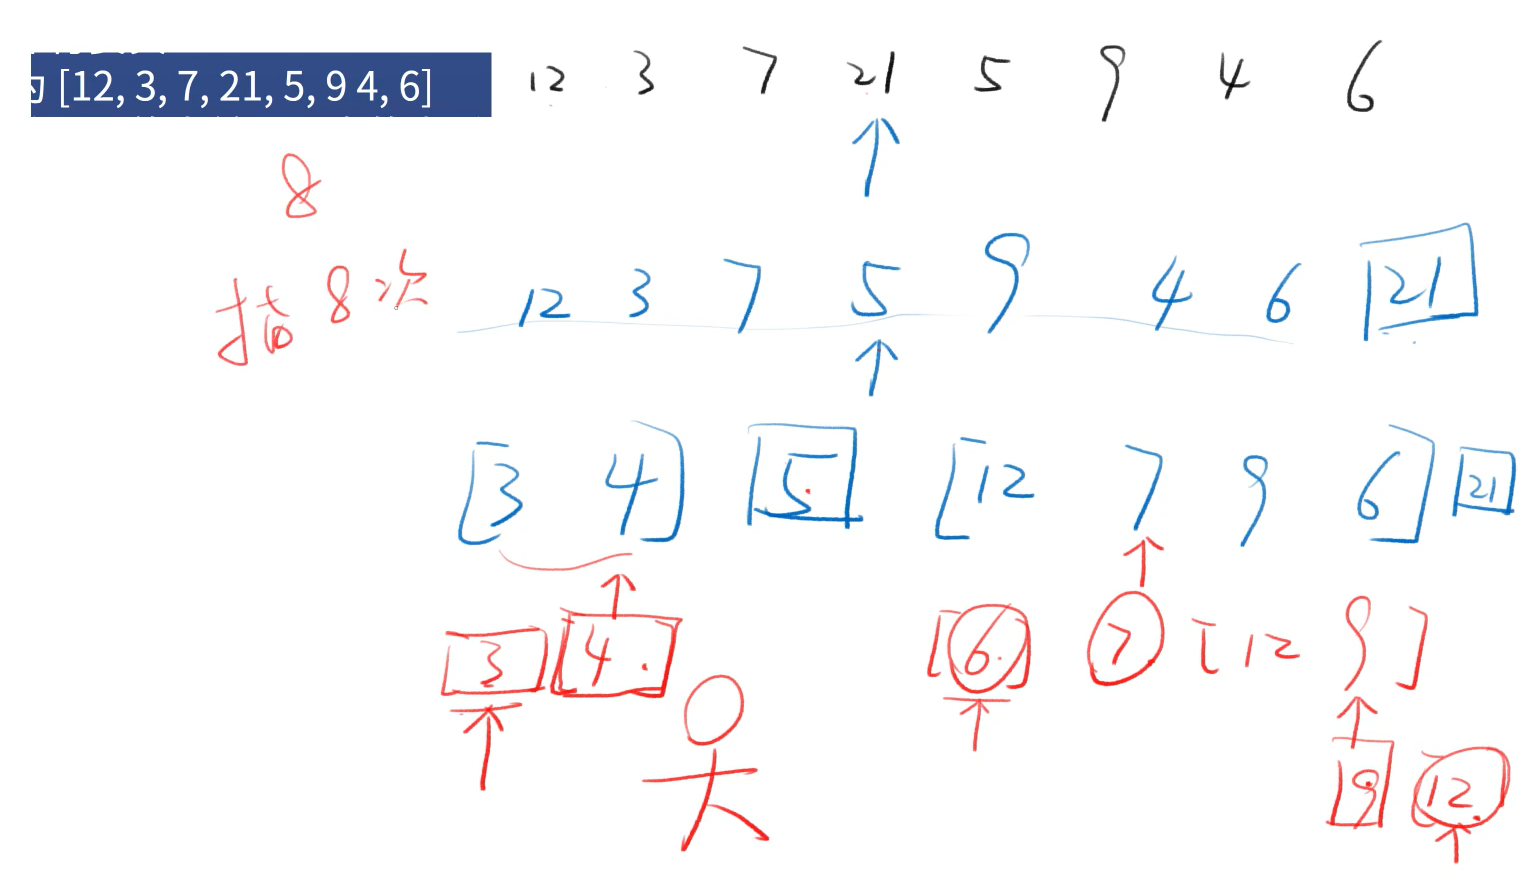 [12, 3, 7, 21, 5, 9 4, 6]
12 3 7 21 5 9 4 6
8
指 8 次
12 3 7 5 9 4 6 21
[3 4] 5 [12 7 9 6] 21
3 4 [6] 7 [12 9]
9 [12